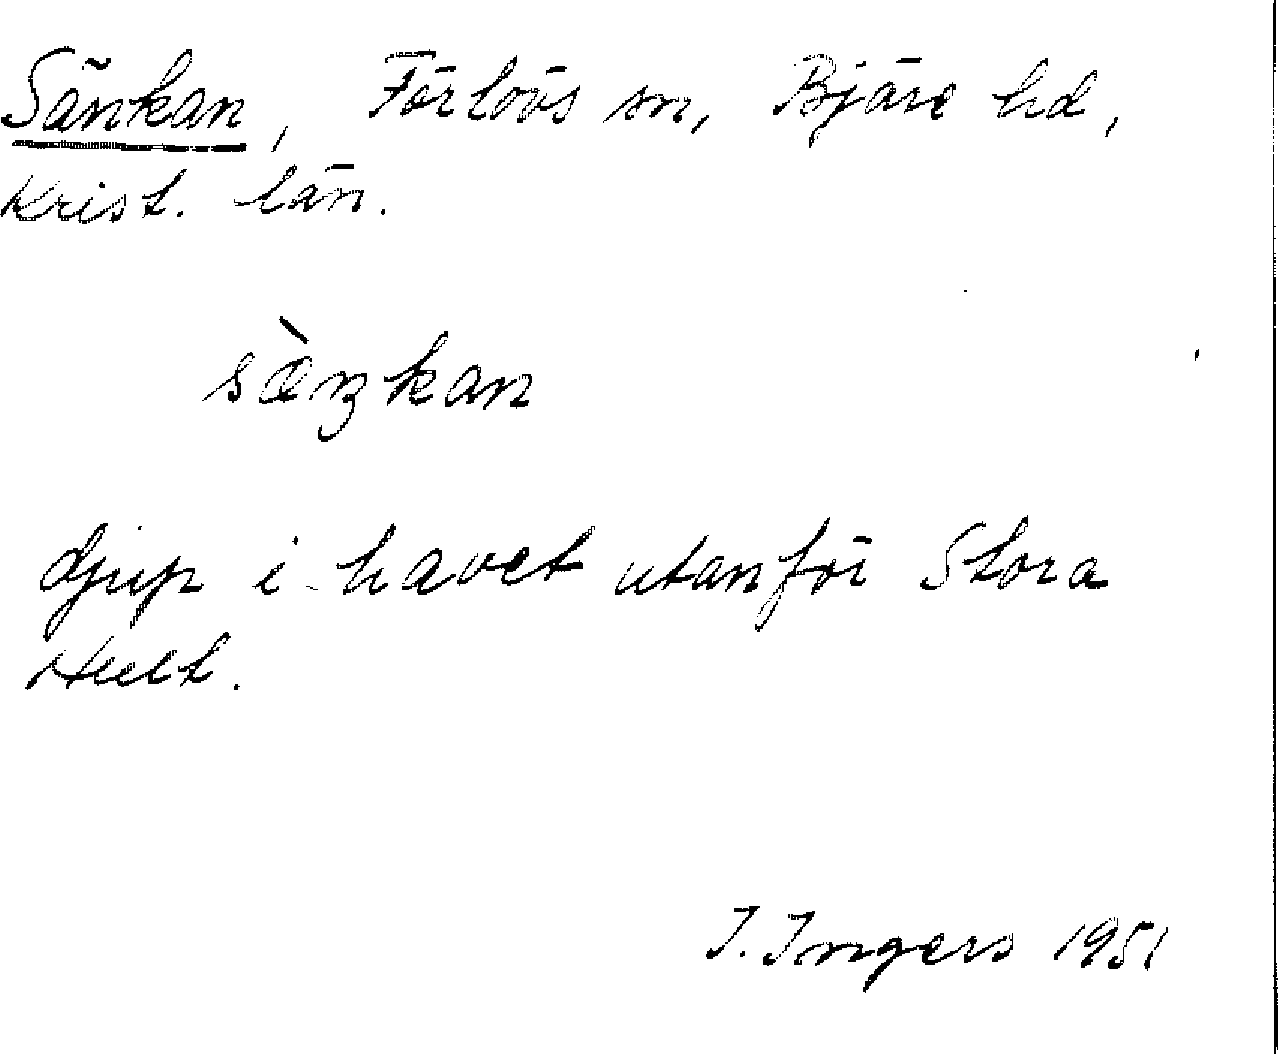 Sänkan, Förlövs sn, Bjäre hd,
Krist. län.
sæ̀ŋkan
djup i havet utanför Stora
Hult.
I. Ingers 1951